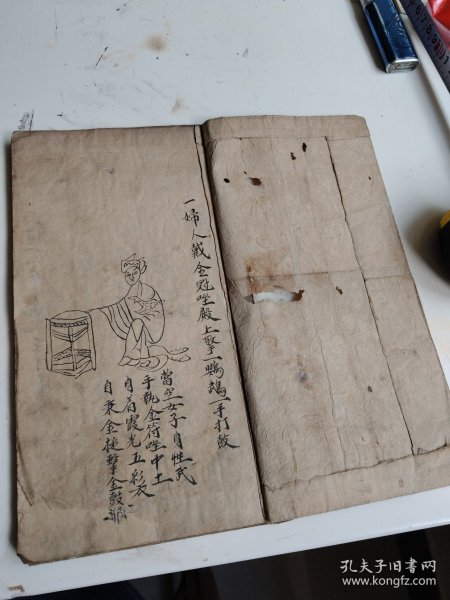 一婦人戴金冠坐殿上擎一鸚鵡一手打鼓
當空女子身性武
手執金符坐中土
身着霞光五彩衣
自秉金槌擊金鼓
孔夫子旧书网
www.kongfz.com